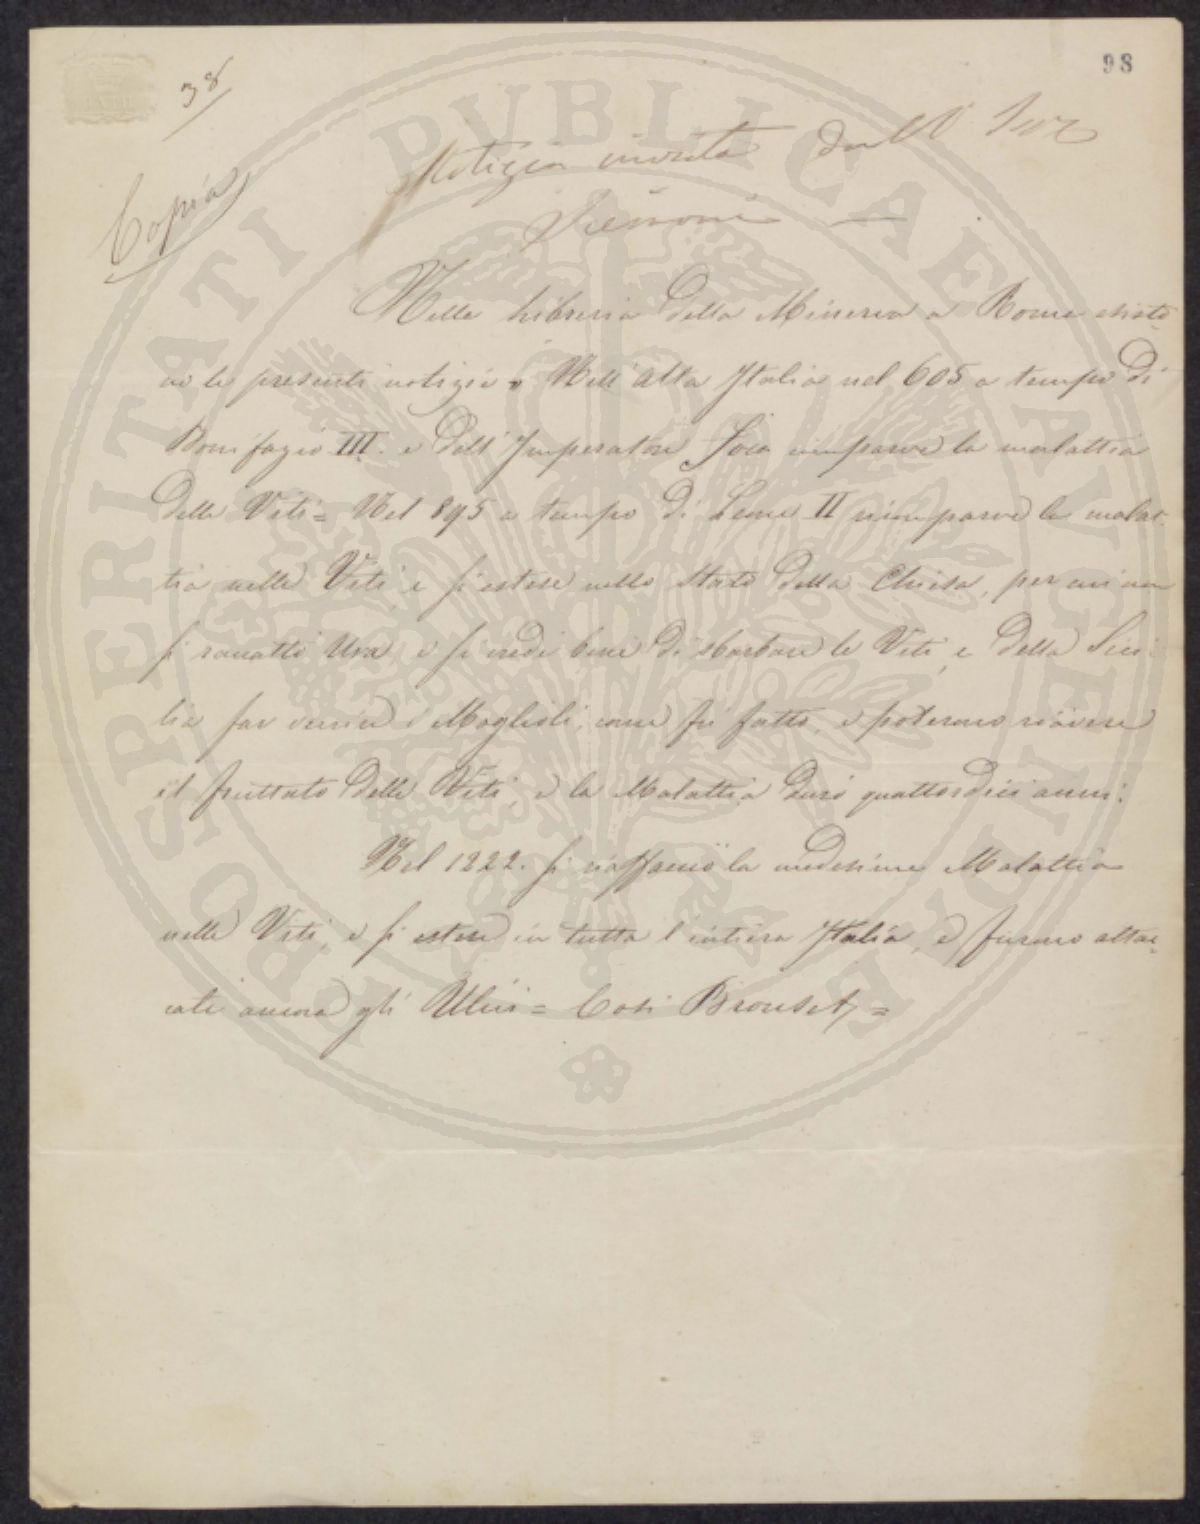 98
38
Copia
Notizia avuta dall'
Nella Libreria della Minerva a Roma esisto-
no le presenti notizie. Nell'alta Italia nel 605 a tempo di
Bonifazio III. e dell'Imperatore Foca comparve la malattia
delle Viti= Nel 895 a tempo di Leone II ricomparve la malat-
tia nelle Viti, e si estese nello Stato della Chiesa, per cui non
si raccattò Uva, e si credè bene di sbarbare le Viti, e della Sici-
lia far venire i Maglioli, come fù fatto, e poterono riavere
il fruttato delle Viti, e la Malattia durò quattordici anni.
Nel 1222. si riaffacciò la medesima Malattia
nelle Viti, e si estese in tutta l'intiera Italia, e furono attac-
cati ancora gli Ulivi= Così =
PROSPERITATI PVBLICAE AVGENDAE